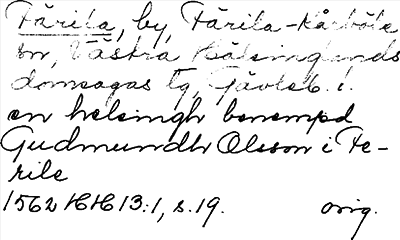 Färila, by, Färila-Kårböle
sn, Västra Hälsinglands
domsagas tg, Gävleb. l.
en helsingh benempd
Gudmundh Olsson i Fe-
rile
1562 HH 13:1, s. 19. orig.